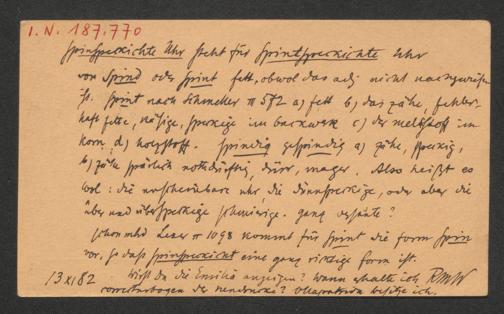 I. N. 187.770
spinsperkichte Uhr steht für spintsperkichte Uhr
von Spind oder Spint fett, obwol das adj nicht nachgewiesen
ist. Spint nach Schmeller II 572 a) fett b) das zähe, fehler-
hafte fette, käsige, sperkige im backwerk c) der mehlstoff im
korn d) holzstoff. spindig gespindig a) zähe, sperkig,
b) zähe spärlich notdürftig, dürr, mager. Also heißt es
wol: die unscheinbare uhr die dünnsperkige, oder aber die
über und übersperkige schmierige. ganz
schon mhd Lexer II 1098 kommt für Spint die form Spin
vor, so daß spinsperkicht eine ganz richtige form ist.
13 XI 82 Wirst du die Emilia anzeigen? Wann erhalte ich RMW
correcturbogen der neudrucke? besitze ich.